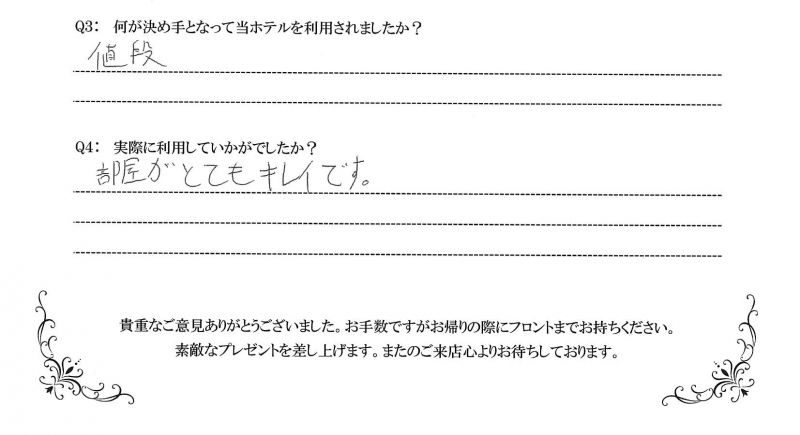 Q3: 何が決め手となって当ホテルを利用されましたか？
値段
Q4: 実際に利用していかがでしたか？
部屋がとてもキレイです。
貴重なご意見ありがとうございました。お手数ですがお帰りの際にフロントまでお持ちください。
素敵なプレゼントを差し上げます。またのご来店心よりお待ちしております。